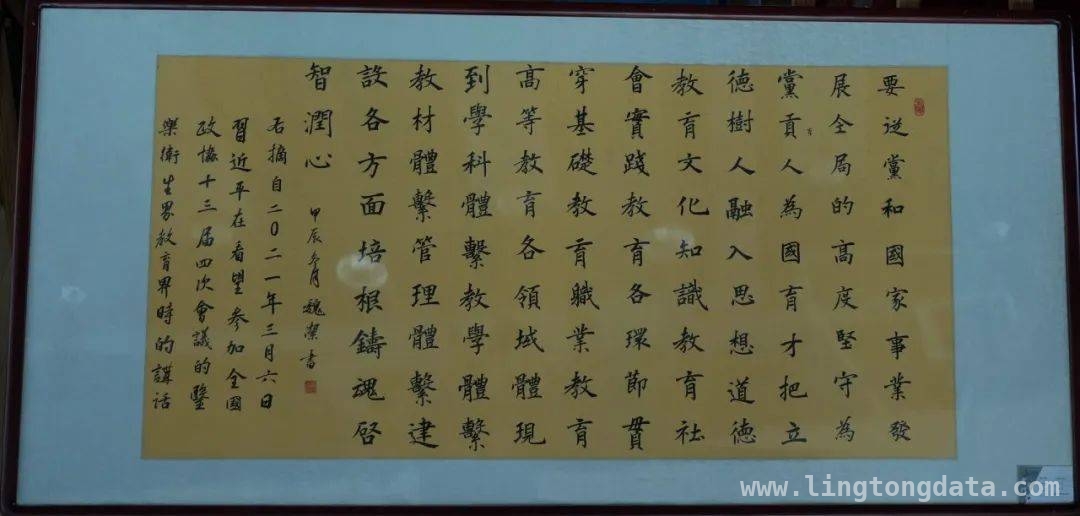 要從黨和國家事業發
展全局的高度堅守為
黨貢人為國育才把立
育
德樹人融入思想道德
教育文化知識教育社
會實踐教育各環節貫
穿基礎教育職業教育
高等教育各領域體現
到學科體繫教學體繫
教材體繫管理體繫建
設各方面培根鑄魂启
智潤心
甲辰冬月 魏潔書
右摘自二〇二一年三月六日
習近平在看望參加全國
政協十三届四次會議的醫
藥衛生界教育界時的講話
www.lingtongdata.com